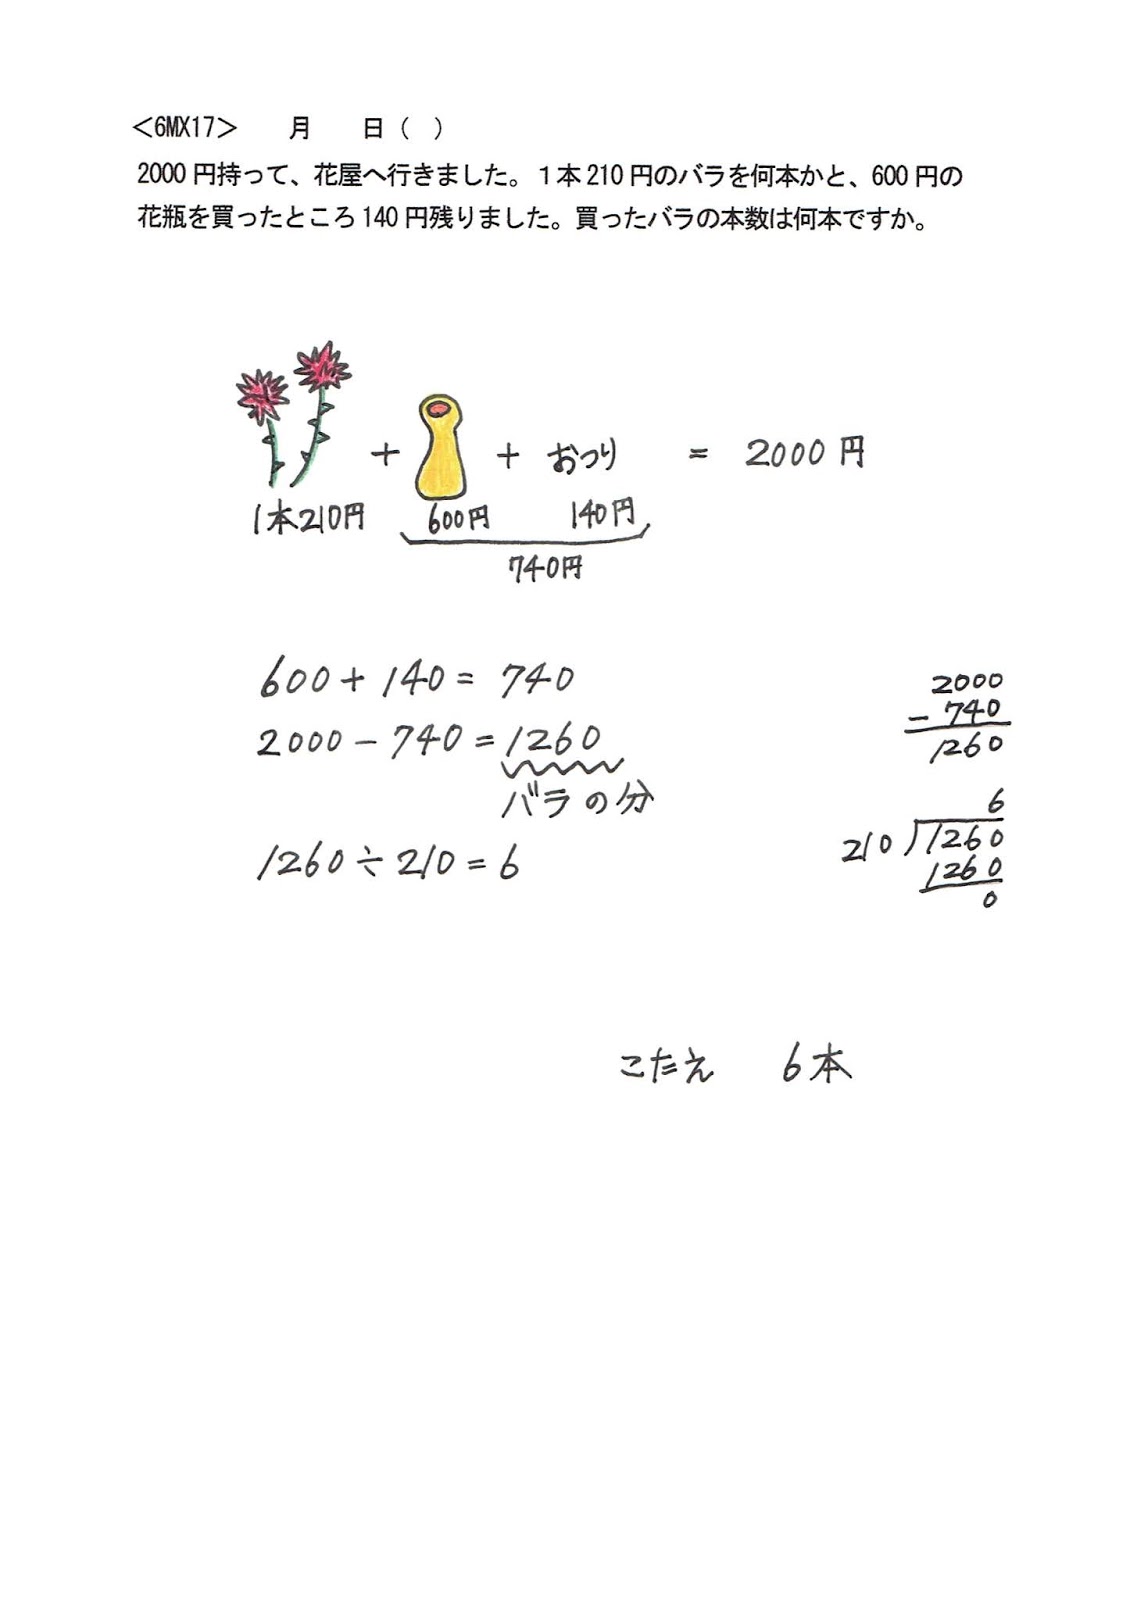 <6MX17>　　月　　日（　）
2000円持って、花屋へ行きました。1本210円のバラを何本かと、600円の
花瓶を買ったところ140円残りました。買ったバラの本数は何本ですか。
+ + おつり = 2000円
1本210円 600円 140円
740円
600+140=740
2000-740=1260
バラの分
1260÷210=6
2000
-740
1260
6
210)1260
1260
0
こたえ 6本